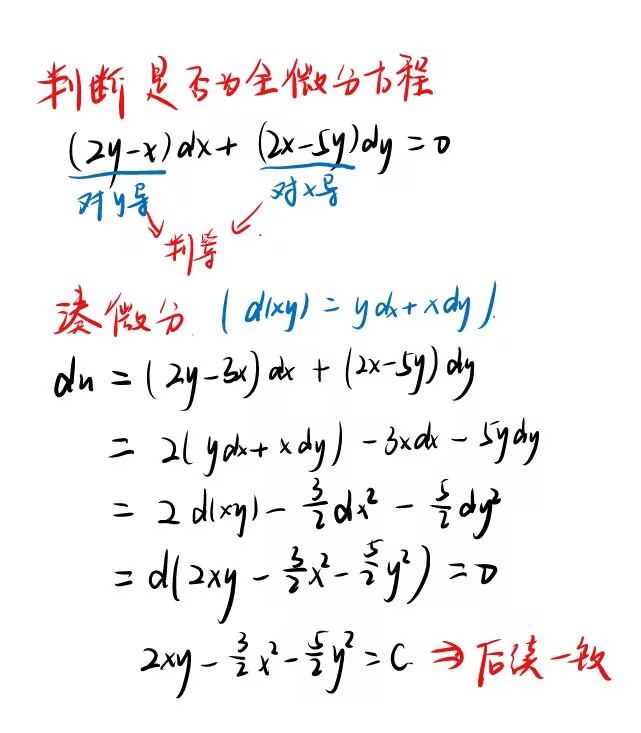 判断是否为全微分方程
(2y-x)dx+(2x-5y)dy=0
对y导 对x导
判等
凑微分 (d(xy)=ydx+xdy).
du=(2y-3x)dx+(2x-5y)dy
=2(ydx+xdy)-3xdx-5ydy
=2d(xy)-3/2dx²-5/2dy²
=d(2xy-3/2x²-5/2y²)=0
2xy-3/2x²-5/2y²=C ⇒后续一致